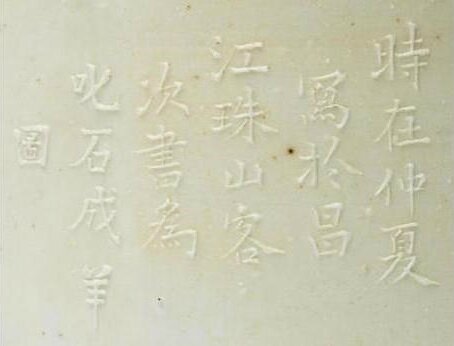 時在仲夏
寫於昌
江珠山客
次書為
叱石成羊
圖